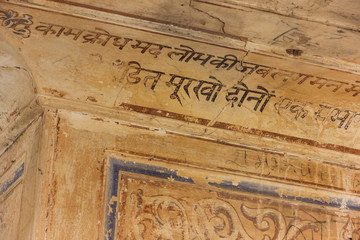 काम क्रोध मद लोभ की जब लग मन में
डित मूरखो दोनों एक समा